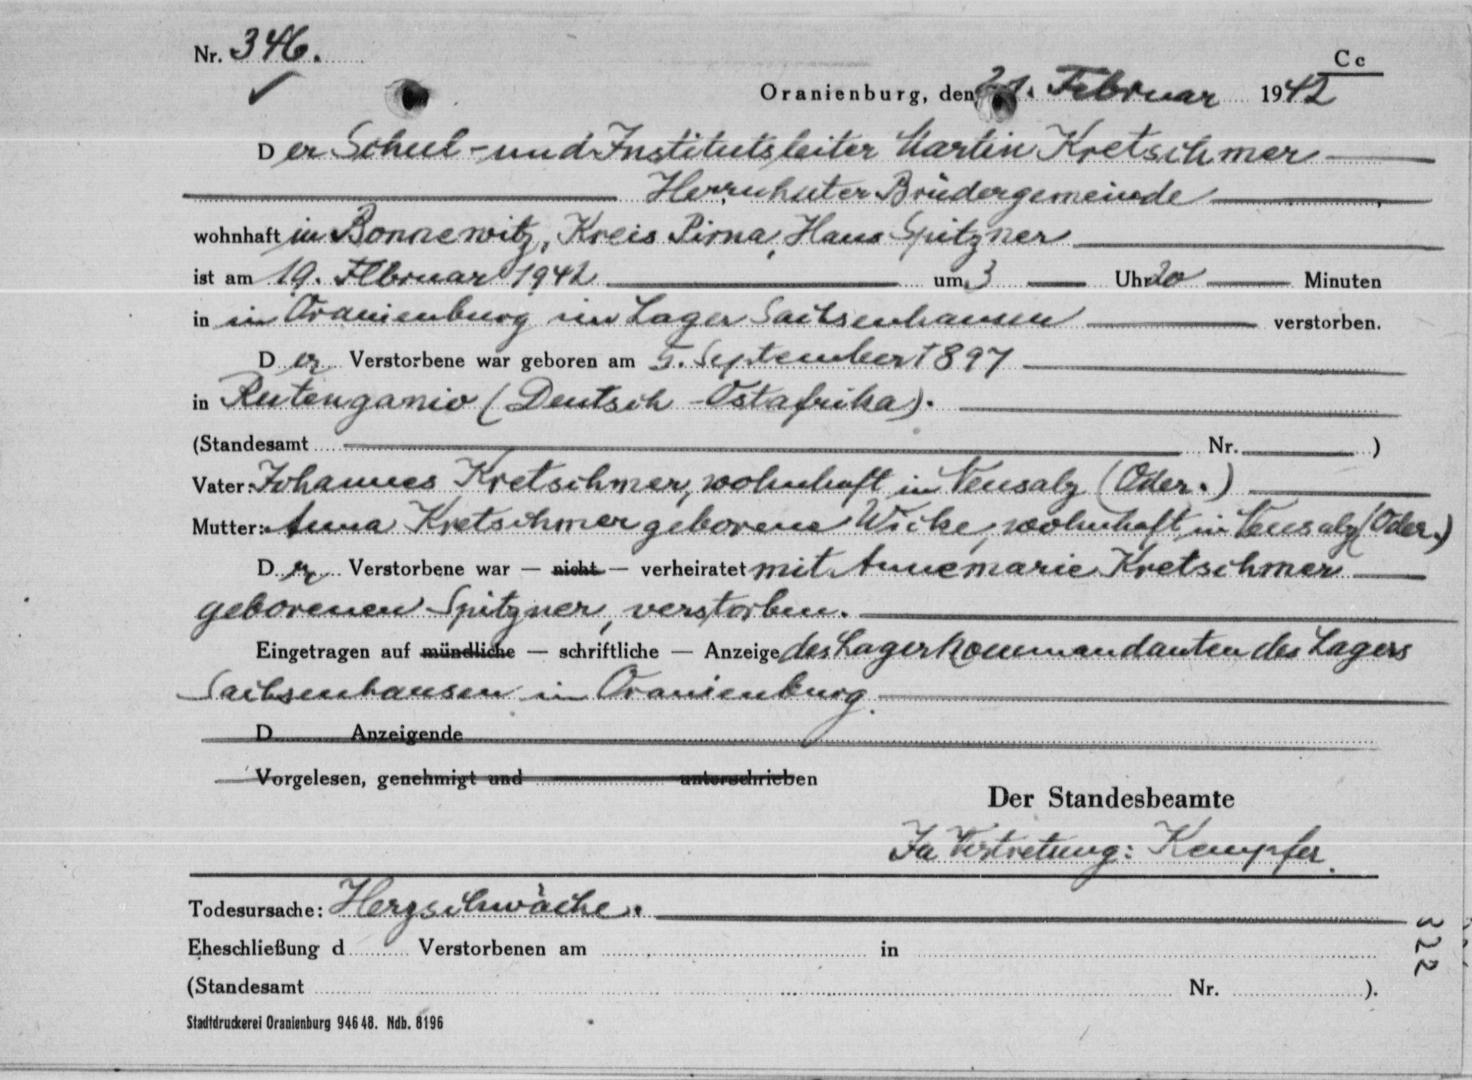 Nr. 346.
Cc
Oranienburg, den 21. Februar 1942
Der Schul- und Institutsleiter Martin Kretschmer
Herrnhuter Brüdergemeinde,
wohnhaft in Bonnewitz, Kreis Pirna, Haus Spitzner
ist am 19. Februar 1942 um 3 Uhr 20 Minuten
in in Oranienburg im Lager Sachsenhausen verstorben.
Der Verstorbene war geboren am 5. September 1897
in Rutenganio (Deutsch-Ostafrika).
(Standesamt Nr. )
Vater: Johannes Kretschmer, wohnhaft in Neusalz (Oder.)
Mutter: Anna Kretschmer geborene Wicke, wohnhaft in Neusalz (Oder.)
Der Verstorbene war — nicht — verheiratet mit Annemarie Kretschmer
geborenen Spitzner, verstorben.
Eingetragen auf mündliche — schriftliche — Anzeige des Lagerkommandanten des Lagers
Sachsenhausen in Oranienburg.
D Anzeigende
Vorgelesen, genehmigt und unterschrieben
Der Standesbeamte
In Vertretung: Kempfer.
Todesursache: Herzschwäche.
Eheschließung d Verstorbenen am in
(Standesamt Nr. ).
Stadtdruckerei Oranienburg 946 48. Ndb. 8196
322